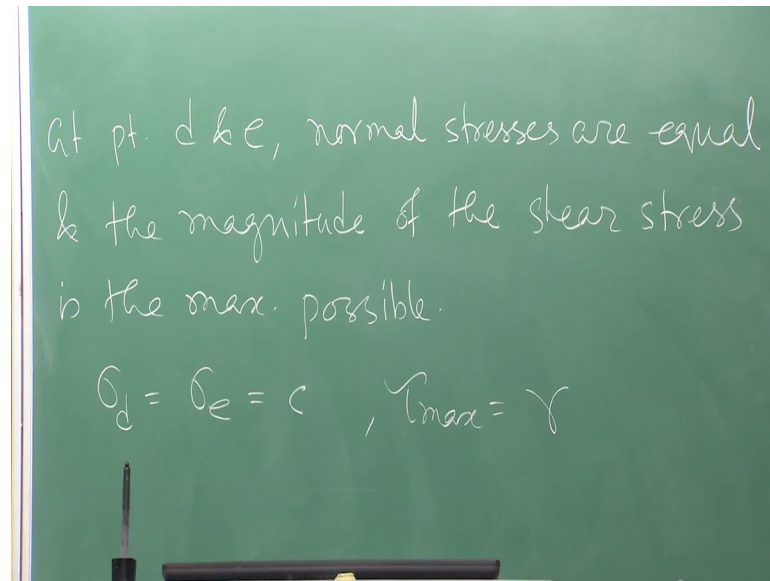 at pt. d & e, normal stresses are equal
& the magnitude of the shear stress
is the max. possible.
σd = σe = c , τmax = r